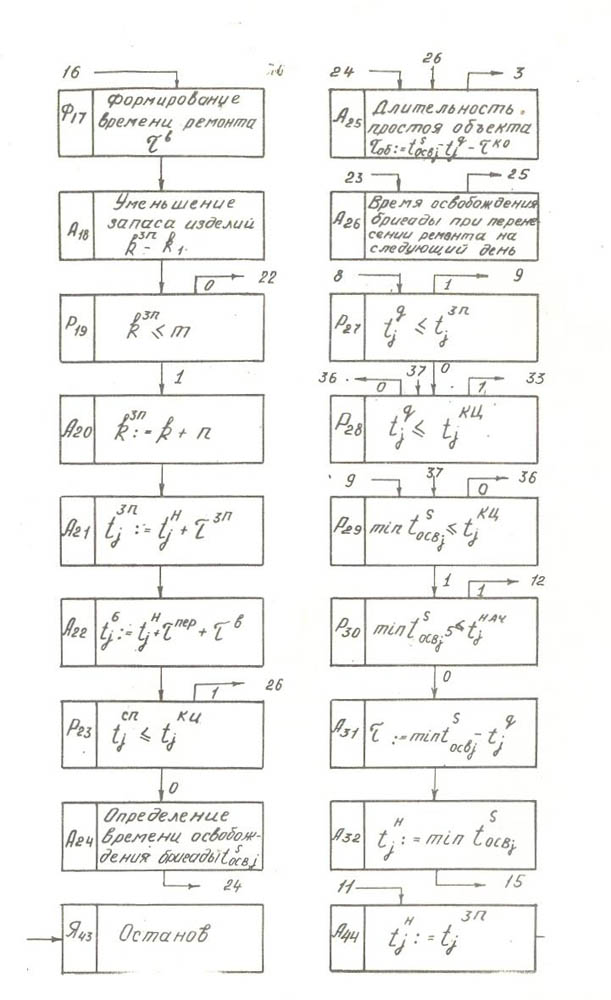 16
Ф17
Формирование
времени ремонта
τᵇ
А18
Уменьшение
запаса изделий
k³ᵖ - k₁
22
0
Р19
k³ᵖ ≤ m
1
А20
k³ᵖ := k + n
А21
tⱼ³ᵖ := tⱼᴴ + τ³ᵖ
А22
tⱼᵟ := tⱼᴴ + τᵖᵉᵖ + τᵇ
26
1
Р23
tⱼᶜᵖ ≤ tⱼᴷᶣ
0
А24
Определение
времени освобож-
дения бригады tˢосвⱼ
24
Я43
Останов
24
26
3
А25
Длительность
простоя объекта
τоб := tˢосвⱼ - tⱼᵍ - τᴷᴼ
23
25
А26
Время освобождения
бригады при перене-
сении ремонта на
следующий день
8
9
1
Р27
tⱼᵍ ≤ tⱼ³ᵖ
0
36
37
33
0
1
Р28
tⱼᵍ ≤ tⱼᴷᶣ
9
37
36
0
Р29
min tˢосвⱼ ≤ tⱼᴷᶣ
1
12
1
Р30
min tˢосвⱼ s ≤ tⱼᴴᴬᶣ
0
А31
τ := min tˢосвⱼ - tⱼᵍ
А32
tⱼᴴ := min tˢосвⱼ
15
11
А44
tⱼᴴ := tⱼ³ᵖ